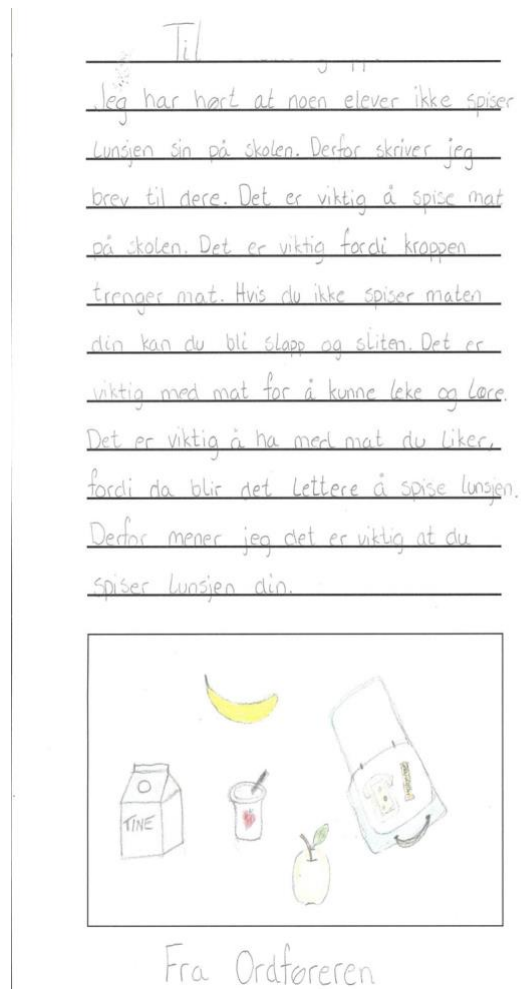 Til
Jeg har hørt at noen elever ikke spiser
lunsjen sin på skolen. Derfor skriver jeg
brev til dere. Det er viktig å spise mat
på skolen. Det er viktig fordi kroppen
trenger mat. Hvis du ikke spiser maten
din kan du bli slapp og sliten. Det er
viktig med mat for å kunne leke og lære.
Det er viktig å ha med mat du liker,
fordi da blir det lettere å spise lunsjen.
Derfor mener jeg det er viktig at du
spiser lunsjen din.
TINE
Fra Ordføreren